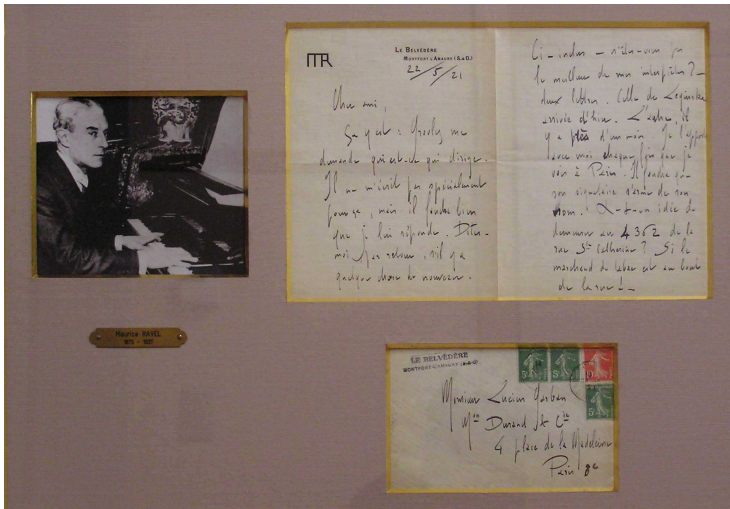 Maurice RAVEL
1875 - 1937
MR
LE BELVÉDÈRE
MONTFORT L'AMAURY (S.&O.)
22/5/21
Cher ami,
Ça y est : me
demande qui est-ce qui dirige.
Il ne m'écrit pas spécialement
pour ça, mais il faudra bien
que je lui réponde. Dites-
moi, par retour, s'il y a
quelque chose de nouveau.
Ci-inclus — n'êtes-vous pas
le meilleur de mes interprètes ? —
deux lettres. Celle de
arrivée d'hier. L'autre, il
y a près d'un mois. Je l'apporte
avec moi chaque fois que je
vais à Paris. Il faudra que
son signataire s'arme de son
nom. A-t-on idée de
demeurer au 4362 de la
rue Ste Catherine ? Si le
marchand de tabac est au bout
de la rue ! —
LE BELVÉDÈRE
MONTFORT-L'AMAURY (S.&O.)
Monsieur Lucien Garban
Mon Durand & Cie
4 place de la Madeleine
Paris 8e